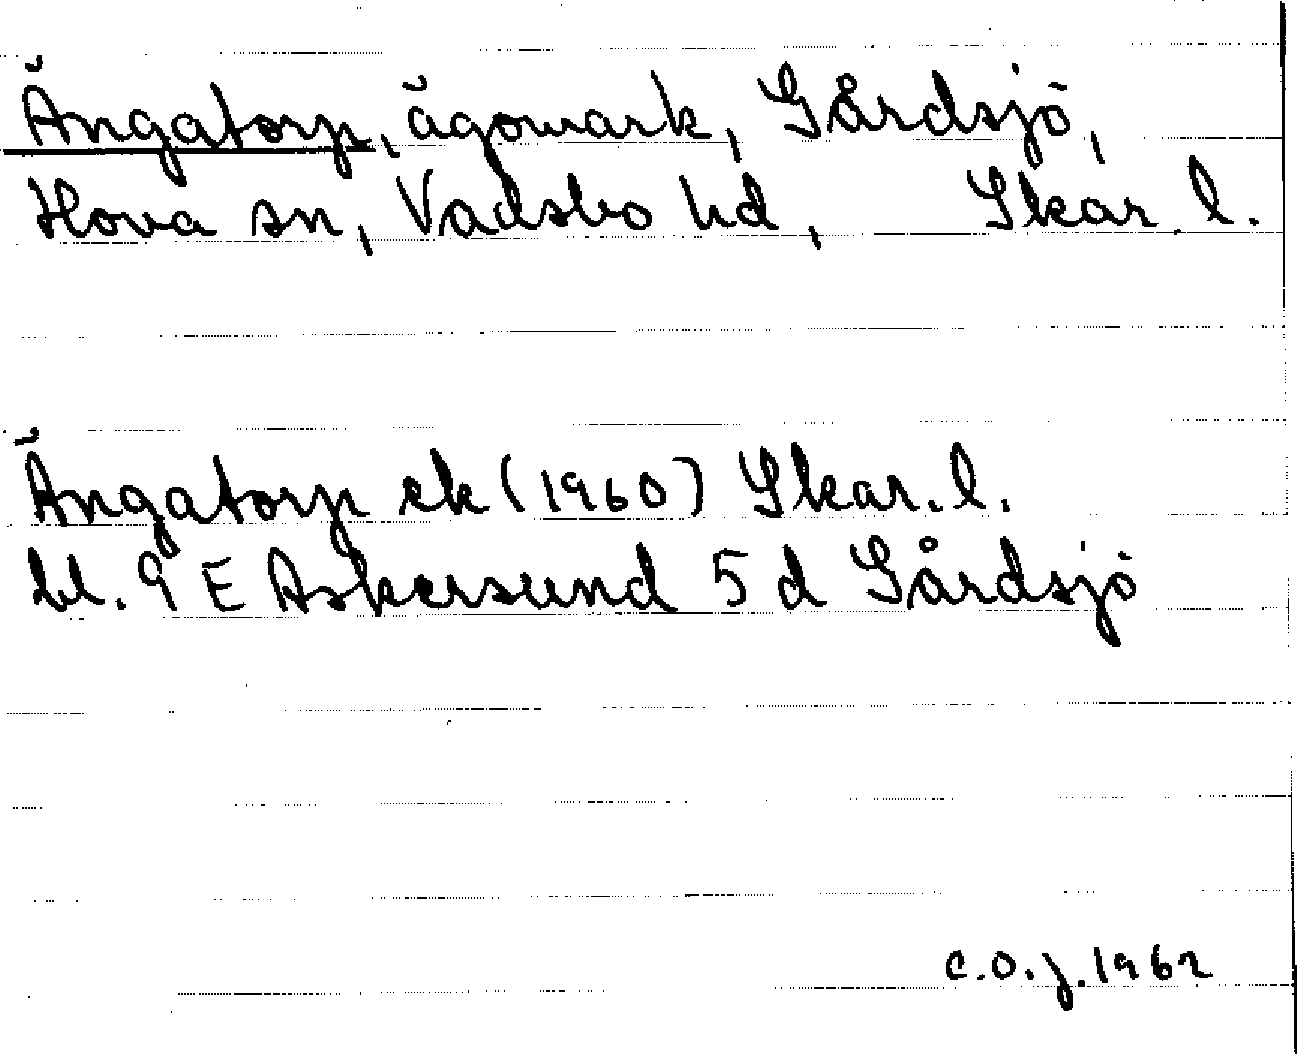 Ängatorp, ägomark, Gårdsjö,
Hova sn, Vadsbo hd, Skar. l.
Ängatorp ek (1960) Skar. l.
bl. 9 E Askersund 5 d Gårdsjö
C.O.J. 1962